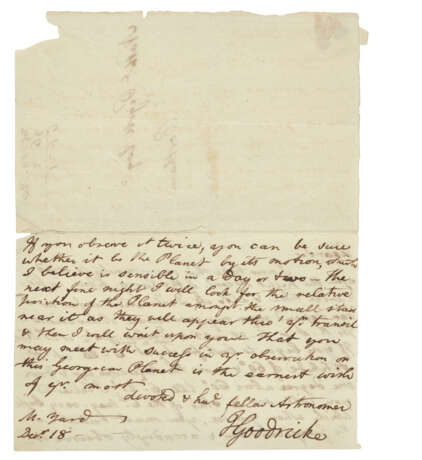 If you observe it twice, you can be sure
whether it be the Planet by its motion, which
I believe is sensible in a Day or two — the
next fine night I will look for the relative
position of the Planet amongst the small stars
near it as they will appear thro' yr. transit
& then I will wait upon you. That you
may meet with success in yr. observation on
this Georgian Planet is the earnest wish
of yr. most
devoted & hue. fellow Astronomer
JGoodricke
M. Yard
Decr. 18.